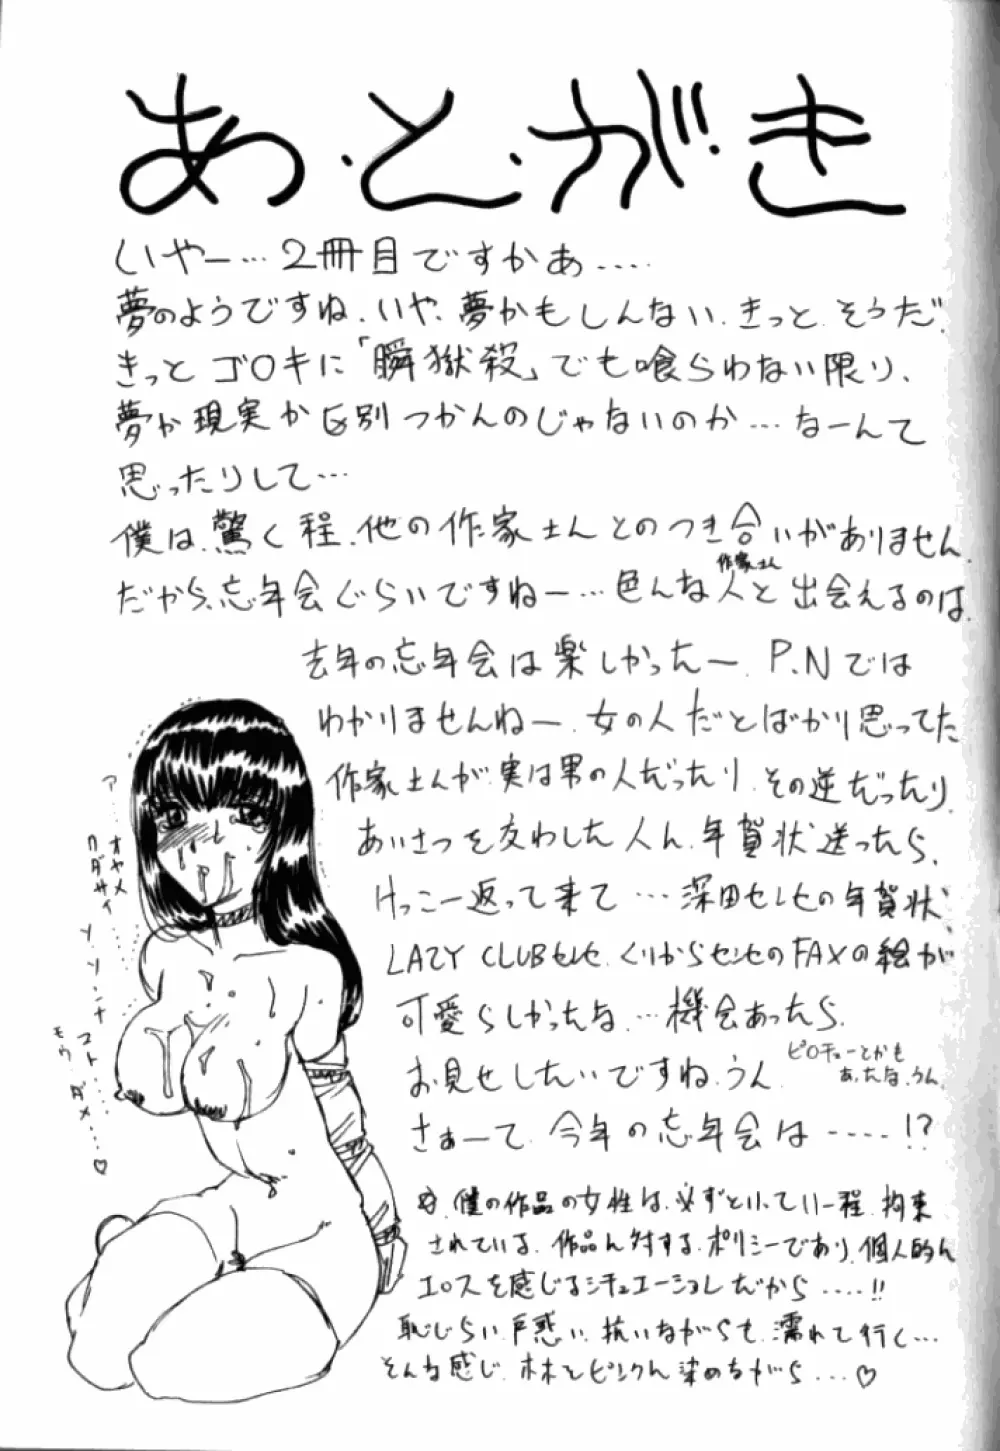 あ・と・が・き
いやー…2冊目ですかあ‥‥
夢のようですね、いや、夢かもしんない、きっと、そうだ、
きっとゴ○キに「瞬獄殺」でも喰らわない限り、
夢か現実か区別つかんのじゃないのか…なーんて
思ったりして…
僕は、驚く程、他の作家さんとのつき合いがありません、
だから、忘年会ぐらいですねー…色んな人と出会えるのは、
作家さん
去年の忘年会は楽しかったー、P.Nでは
わかりませんねー、女の人だとばかり思ってた
作家さんが、実は男の人だったり、その逆だったり、
あいさつを交わした人に、年賀状送ったら、
けっこー返って来て…深田センセの年賀状、
LAZY CLUBセンセ、くりからセンセのFAXの絵が
可愛らしかったな、…機会あったら、
お見せしたいですね、うん、
ピロチューとかも
あったな、うん、
さぁーて、今年の忘年会は‥‥!?
僕の作品の女性は、必ずといっていー程、拘束
されている、作品に対するポリシーであり、個人的に
エロスを感じるシチュエーションだから‥‥!!
恥じらい、戸惑い、抗いながらも、濡れて行く…
そんな感じ、ホホをピンクに染めながら…♡
ア‥‥オヤメ
クダサイ
ソ、ソンナ
コト‥‥
モウ、ダメ‥‥♡